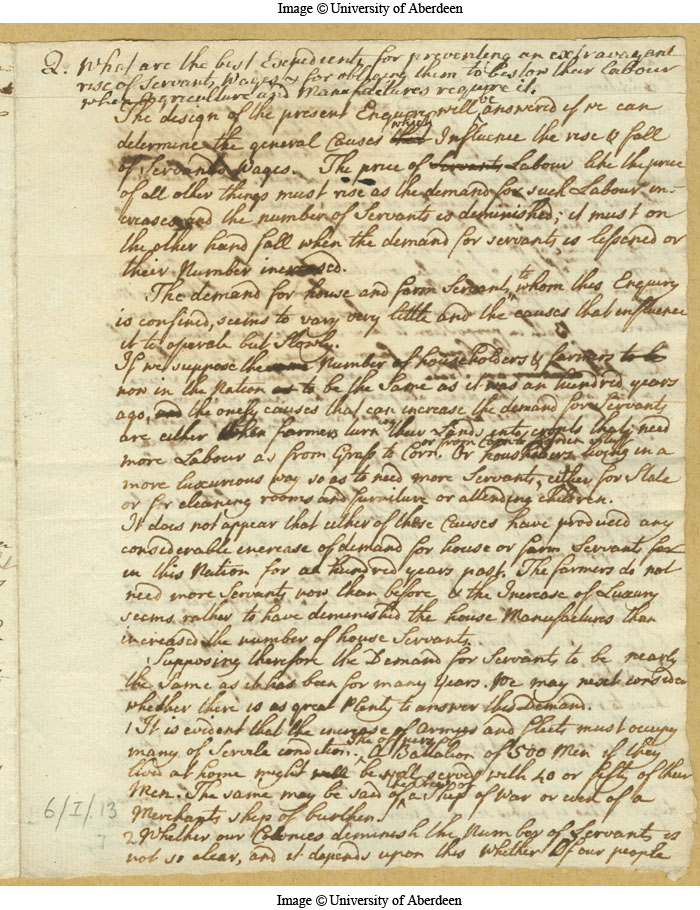 Image © University of Aberdeen
Q. What are the best Expedients for preventing an extravagant
rise of Servants Wages & for obliging them to bestow their Labour
when Agriculture and Manufactures require it.
The design of the present Enquiry will be answered if we can
determine the general Causes that which Influence the rise & fall
of Servants Wages. The price of Servants Labour like the price
of all other things must rise as the demand for such Labour in-
creases and the number of Servants is diminished; it must on
the other hand fall when the demand for servants is lessened or
their Number increased.
The demand for house and farm Servants to whom this Enquiry
is confined, seems to vary very little and the causes that influence
it to operate but Slowly.
If we suppose the Number of householders & farmers to be
now in the Nation as to be the Same as it was an hundred years
ago, and the onely causes that can increase the demand for Servants
are either when Farmers turn their Lands into crops that need
more Labour as from Grass to Corn. or from Corn to Or householders living in a
more luxurious way so as to need more Servants, either for State
or for cleaning rooms and furniture or attending children.
It does not appear that either of these Causes have produced any
considerable encrease of demand for house or farm Servants
in this Nation for an hundred years past. The farmers do not
need more Servants now than before & the Increase of Luxury
seems rather to have deminished the house Manufactures than
increased the number of house Servants.
Supposing therefore the Demand for Servants to be nearly
the Same as it has been for many Years. We may next consider
whether there is as great Plenty to answer this Demand.
1 It is evident that the increase of Armies and Fleets must occupy
many of Servile condition. The Officers of a Battalion of 500 Men if they
lived at home might be well served with 40 or fifty of their
Men. The same may be said of a Ship of War or even of a
Merchants ship of burthen.
2 Whether our Colonies deminish the Number of Servants is
not so clear, and it depends upon this Whether If our people
6/I/13
7
Image © University of Aberdeen